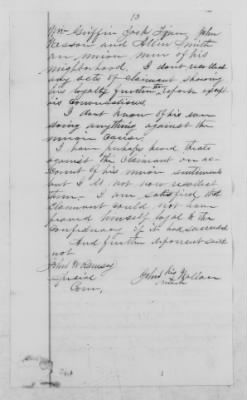 10
Wm Griffin Jack Tyner John
Wasson and Allen Smith
are union men of his
neighborhood. I dont recollect
any acts of claimant showing
his loyalty further except
his conversations.
I dont know of his ever
doing anything against the
union cause.
I have perhaps heard threats
against the Claimant on ac-
count of his union sentiments
but I do not now recollect
them. I am satisfied that
Claimant could not have
proved himself loyal to the
Confederacy if it had succeeded.
And further deponent saith
not
John W Ramsey
Special
Com.
John his
mark